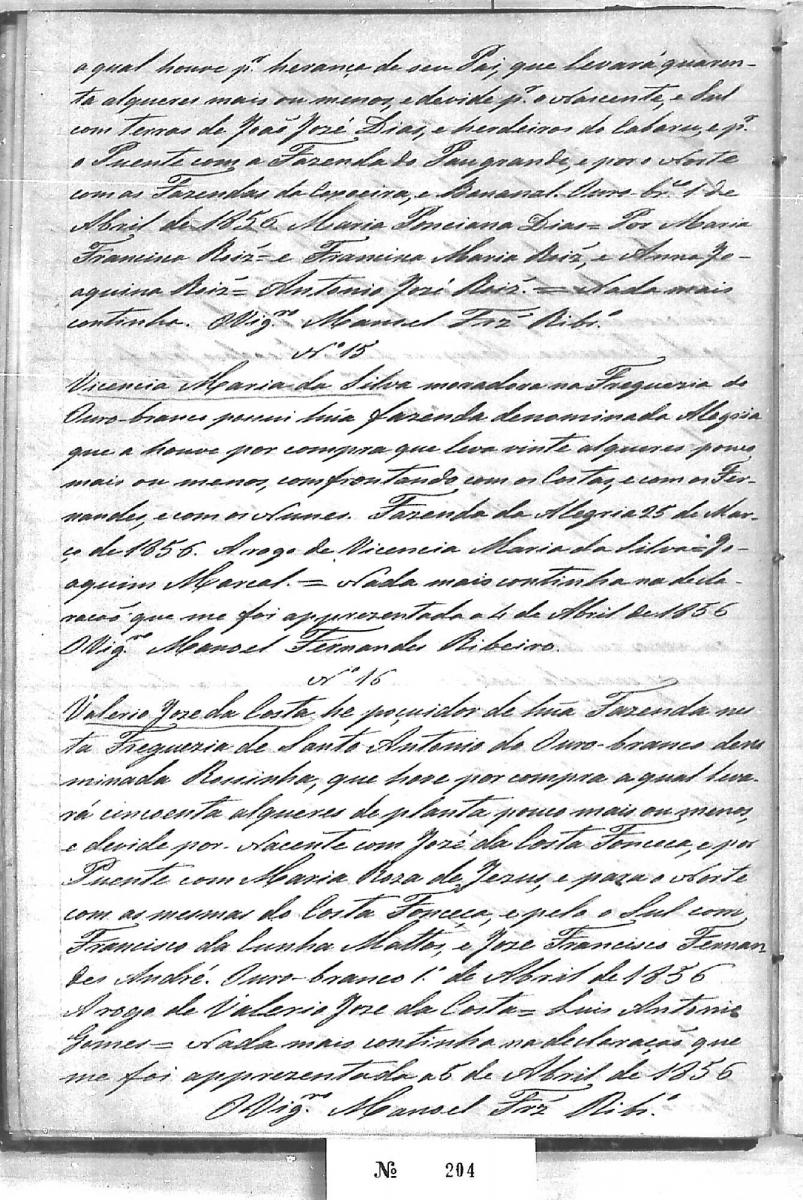 a qual houve p.r herança de seu Pai, que levará quaren-
ta alqueres mais ou menos, e devide p.r o Nascente, e Sul
com terras de João José Dias, e herdeiros do Cabaru, e p.r
o Puente com a Fazenda do Paugrande, e por o Norte
com as Fazendas da Capoeira, e Bananal. Ouro-br.co 1 de
Abril de 1856 Maria Ponciana Dias = Por Maria
Francisca Roiz = e Francisca Maria Roiz, e Anna Jo-
aquina Roiz = Antonio José Roiz. = Nada mais
continha. O Vig.ro Manoel Frz Ribr.o
N.o 15
Vicencia Maria da Silva moradora na Freguezia do
Ouro-branco possui hũa fazenda denominada Alegria
que a houve por compra que leva vinte alqueres pouco
mais ou menos, comfrontando com os Costas, e com os Fer-
nandes, e com os Nunes. Fazenda da Alegria 25 de Mar-
ço de 1856. A rogo de Vicencia Maria da Silva = Jo-
aquim Marcal. = Nada mais continha na decla-
racaõ que me foi apprezentada a 4 de Abril de 1856
O Vig.ro Manoel Fernandes Ribeiro.
N.o 16
Valerio Joze da Costa he pocuidor de hũa Fazenda nes-
ta Freguezia de Santo Antonio do Ouro-branco deno
minada Rossinha, que hove por compra a qual leva-
rá cincoenta alqueres de planta pouco mais ou menos,
e devide por Nacente com José da Costa Fonceca, e por
Puente com Maria Roza de Jezus, e para o Norte
com as mesmas do Costa Fonceca, e pelo o Sul com
Francisco da Cunha Mattos, e Joze Francisco Fernan-
des André. Ouro-branco 1.o de Abril de 1856
A rogo de Valerio Joze da Costa = Luis Antonio
Gomes = Nada mais continha na declaraçaõ que
me foi apprezentada a 5 de Abril de 1856
O Vig.ro Manoel Frz Ribr.o
No 204